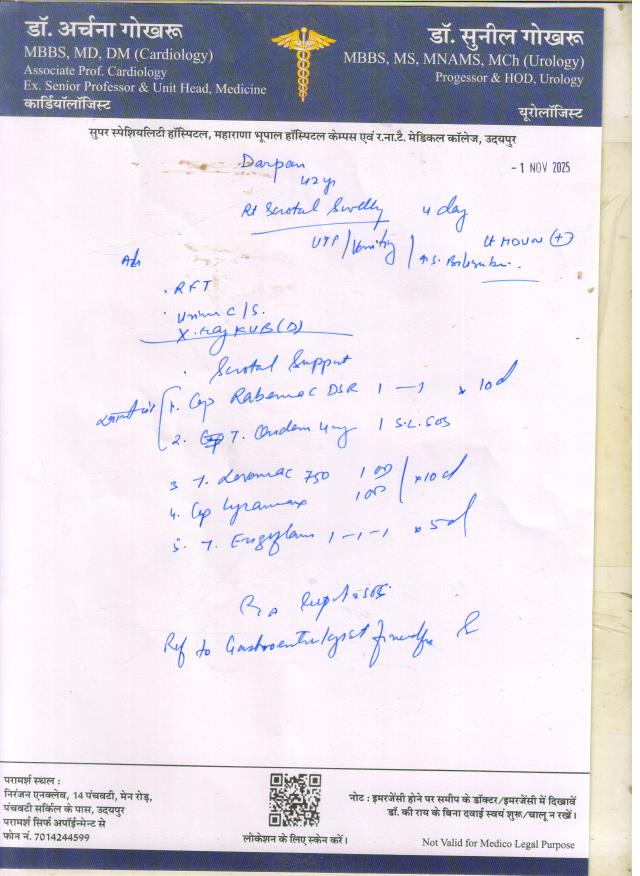 डॉ. अर्चना गोखरू
MBBS, MD, DM (Cardiology)
Associate Prof. Cardiology
Ex. Senior Professor & Unit Head, Medicine
कार्डियॉलॉजिस्ट
डॉ. सुनील गोखरू
MBBS, MS, MNAMS, MCh (Urology)
Progessor & HOD, Urology
यूरोलॉजिस्ट
सुपर स्पेशियलिटी हॉस्पिटल, महाराणा भूपाल हॉस्पिटल केम्पस एवं र.ना.टै. मेडिकल कॉलेज, उदयपुर
Darpan
- 1 NOV 2025
42 yr
Rt Scrotal Swelling 4 day
Vomiting
. RFT
. Urine C/S.
X-Ray KUB (D)
. Scrotal Support
1. Cap Rabemac DSR 1 — 1 x 10d
2. T. Ondem 4mg 1 S.L. SOS
3 T. Levomac 750 1 OD x 10d
4. Cap Lyramax 1 OD
5. T. Enzyflam 1-1-1 x 5d
Ref to Gastroentrologist
परामर्श स्थल :
निरंजन एनक्लेव, 14 पंचवटी, मेन रोड़,
पंचवटी सर्किल के पास, उदयपुर
परामर्श सिर्फ अपॉईन्मेन्ट से
फोन नं. 7014244599
लोकेशन के लिए स्केन करें।
नोट : इमरजेंसी होने पर समीप के डॉक्टर/इमरजेंसी में दिखावें
डॉ. की राय के बिना दवाई स्वयं शुरू/चालू न रखें।
Not Valid for Medico Legal Purpose